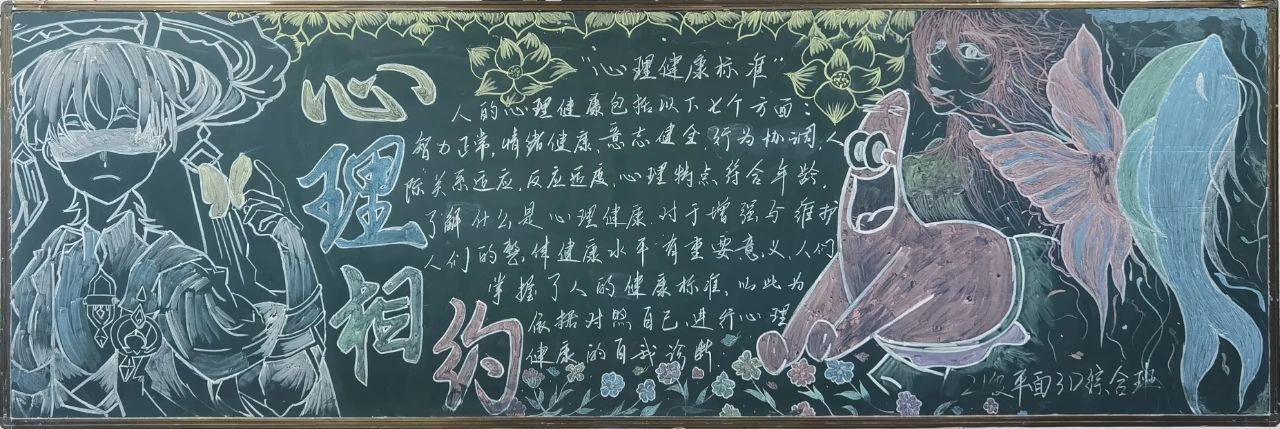 心理相约
"心理健康标准"
人的心理健康包括以下七个方面:
智力正常,情绪健康,意志健全,行为协调,人
际关系适应,反应适度,心理特点符合年龄,
了解什么是心理健康对于增强与维护
人们的整体健康水平有重要意义,人们
掌握了人的健康标准,以此为
依据对照自己进行心理
健康的自我诊断.
平面3D综合班